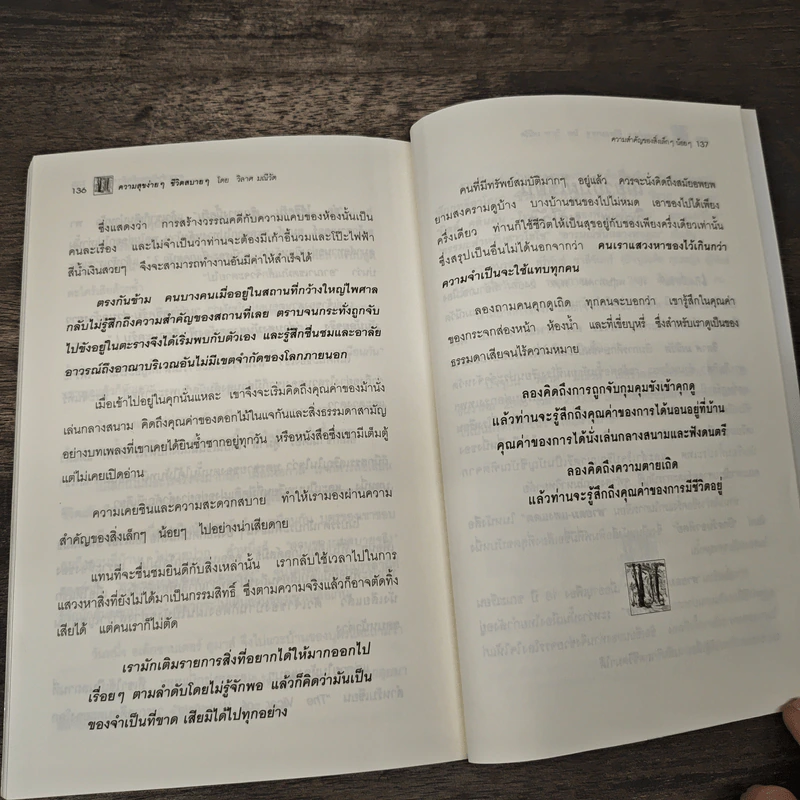 136 ความสุขง่ายๆ ชีวิตสบายๆ โดย วิลาศ มณีวัต
ซึ่งแสดงว่า การสร้างวรรณคดีกับความแคบของห้องนั้นเป็น
คนละเรื่อง และไม่จำเป็นว่าท่านจะต้องมีเก้าอี้นวมและโป๊ะไฟฟ้า
สีน้ำเงินสวยๆ จึงจะสามารถทำงานอันมีค่าให้สำเร็จได้
ตรงกันข้าม คนบางคนเมื่ออยู่ในสถานที่กว้างใหญ่ไพศาล
กลับไม่รู้สึกถึงความสำคัญของสถานที่เลย ตราบจนกระทั่งถูกจับ
ไปขังอยู่ในตะรางจึงได้เริ่มพบกับตัวเอง และรู้สึกชื่นชมและอาลัย
อาวรณ์ถึงอาณาบริเวณอันไม่มีเขตจำกัดของโลกภายนอก
เมื่อเข้าไปอยู่ในคุกนั่นแหละ เขาจึงจะเริ่มคิดถึงคุณค่าของม้านั่ง
เล่นกลางสนาม คิดถึงคุณค่าของดอกไม้ในแจกันและสิ่งธรรมดาสามัญ
อย่างบทเพลงที่เขาเคยได้ยินซ้ำซากอยู่ทุกวัน หรือหนังสือซึ่งเขามีเต็มตู้
แต่ไม่เคยเปิดอ่าน
ความเคยชินและความสะดวกสบาย ทำให้เรามองผ่านความ
สำคัญของสิ่งเล็กๆ น้อยๆ ไปอย่างน่าเสียดาย
แทนที่จะชื่นชมยินดีกับสิ่งเหล่านั้น เรากลับใช้เวลาไปในการ
แสวงหาสิ่งที่ยังไม่ได้มาเป็นกรรมสิทธิ์ ซึ่งตามความจริงแล้วก็อาจตัดทิ้ง
เสียได้ แต่คนเราก็ไม่ตัด
เรามักเติมรายการสิ่งที่อยากได้ให้มากออกไป
เรื่อยๆ ตามลำดับโดยไม่รู้จักพอ แล้วก็คิดว่ามันเป็น
ของจำเป็นที่ขาด เสียมิได้ไปทุกอย่าง
ความสำคัญของสิ่งเล็กๆ น้อยๆ 137
คนที่มีทรัพย์สมบัติมากๆ อยู่แล้ว ควรจะนั่งคิดถึงสมัยอพยพ
ยามสงครามดูบ้าง บางบ้านขนของไปไม่หมด เอาของไปได้เพียง
ครึ่งเดียว ท่านก็ใช้ชีวิตให้เป็นสุขอยู่กับของเพียงครึ่งเดียวเท่านั้น
ซึ่งสรุปเป็นอื่นไม่ได้นอกจากว่า คนเราแสวงหาของไว้เกินกว่า
ความจำเป็นจะใช้แทบทุกคน
ลองถามคนคุกดูเถิด ทุกคนจะบอกว่า เขารู้สึกในคุณค่า
ของกระจกส่องหน้า ห้องน้ำ และที่เขี่ยบุหรี่ ซึ่งสำหรับเราดูเป็นของ
ธรรมดาเสียจนไร้ความหมาย
ลองคิดถึงการถูกจับกุมคุมขังเข้าคุกดู
แล้วท่านจะรู้สึกถึงคุณค่าของการได้นอนอยู่ที่บ้าน
คุณค่าของการได้นั่งเล่นกลางสนามและฟังดนตรี
ลองคิดถึงความตายเถิด
แล้วท่านจะรู้สึกถึงคุณค่าของการมีชีวิตอยู่